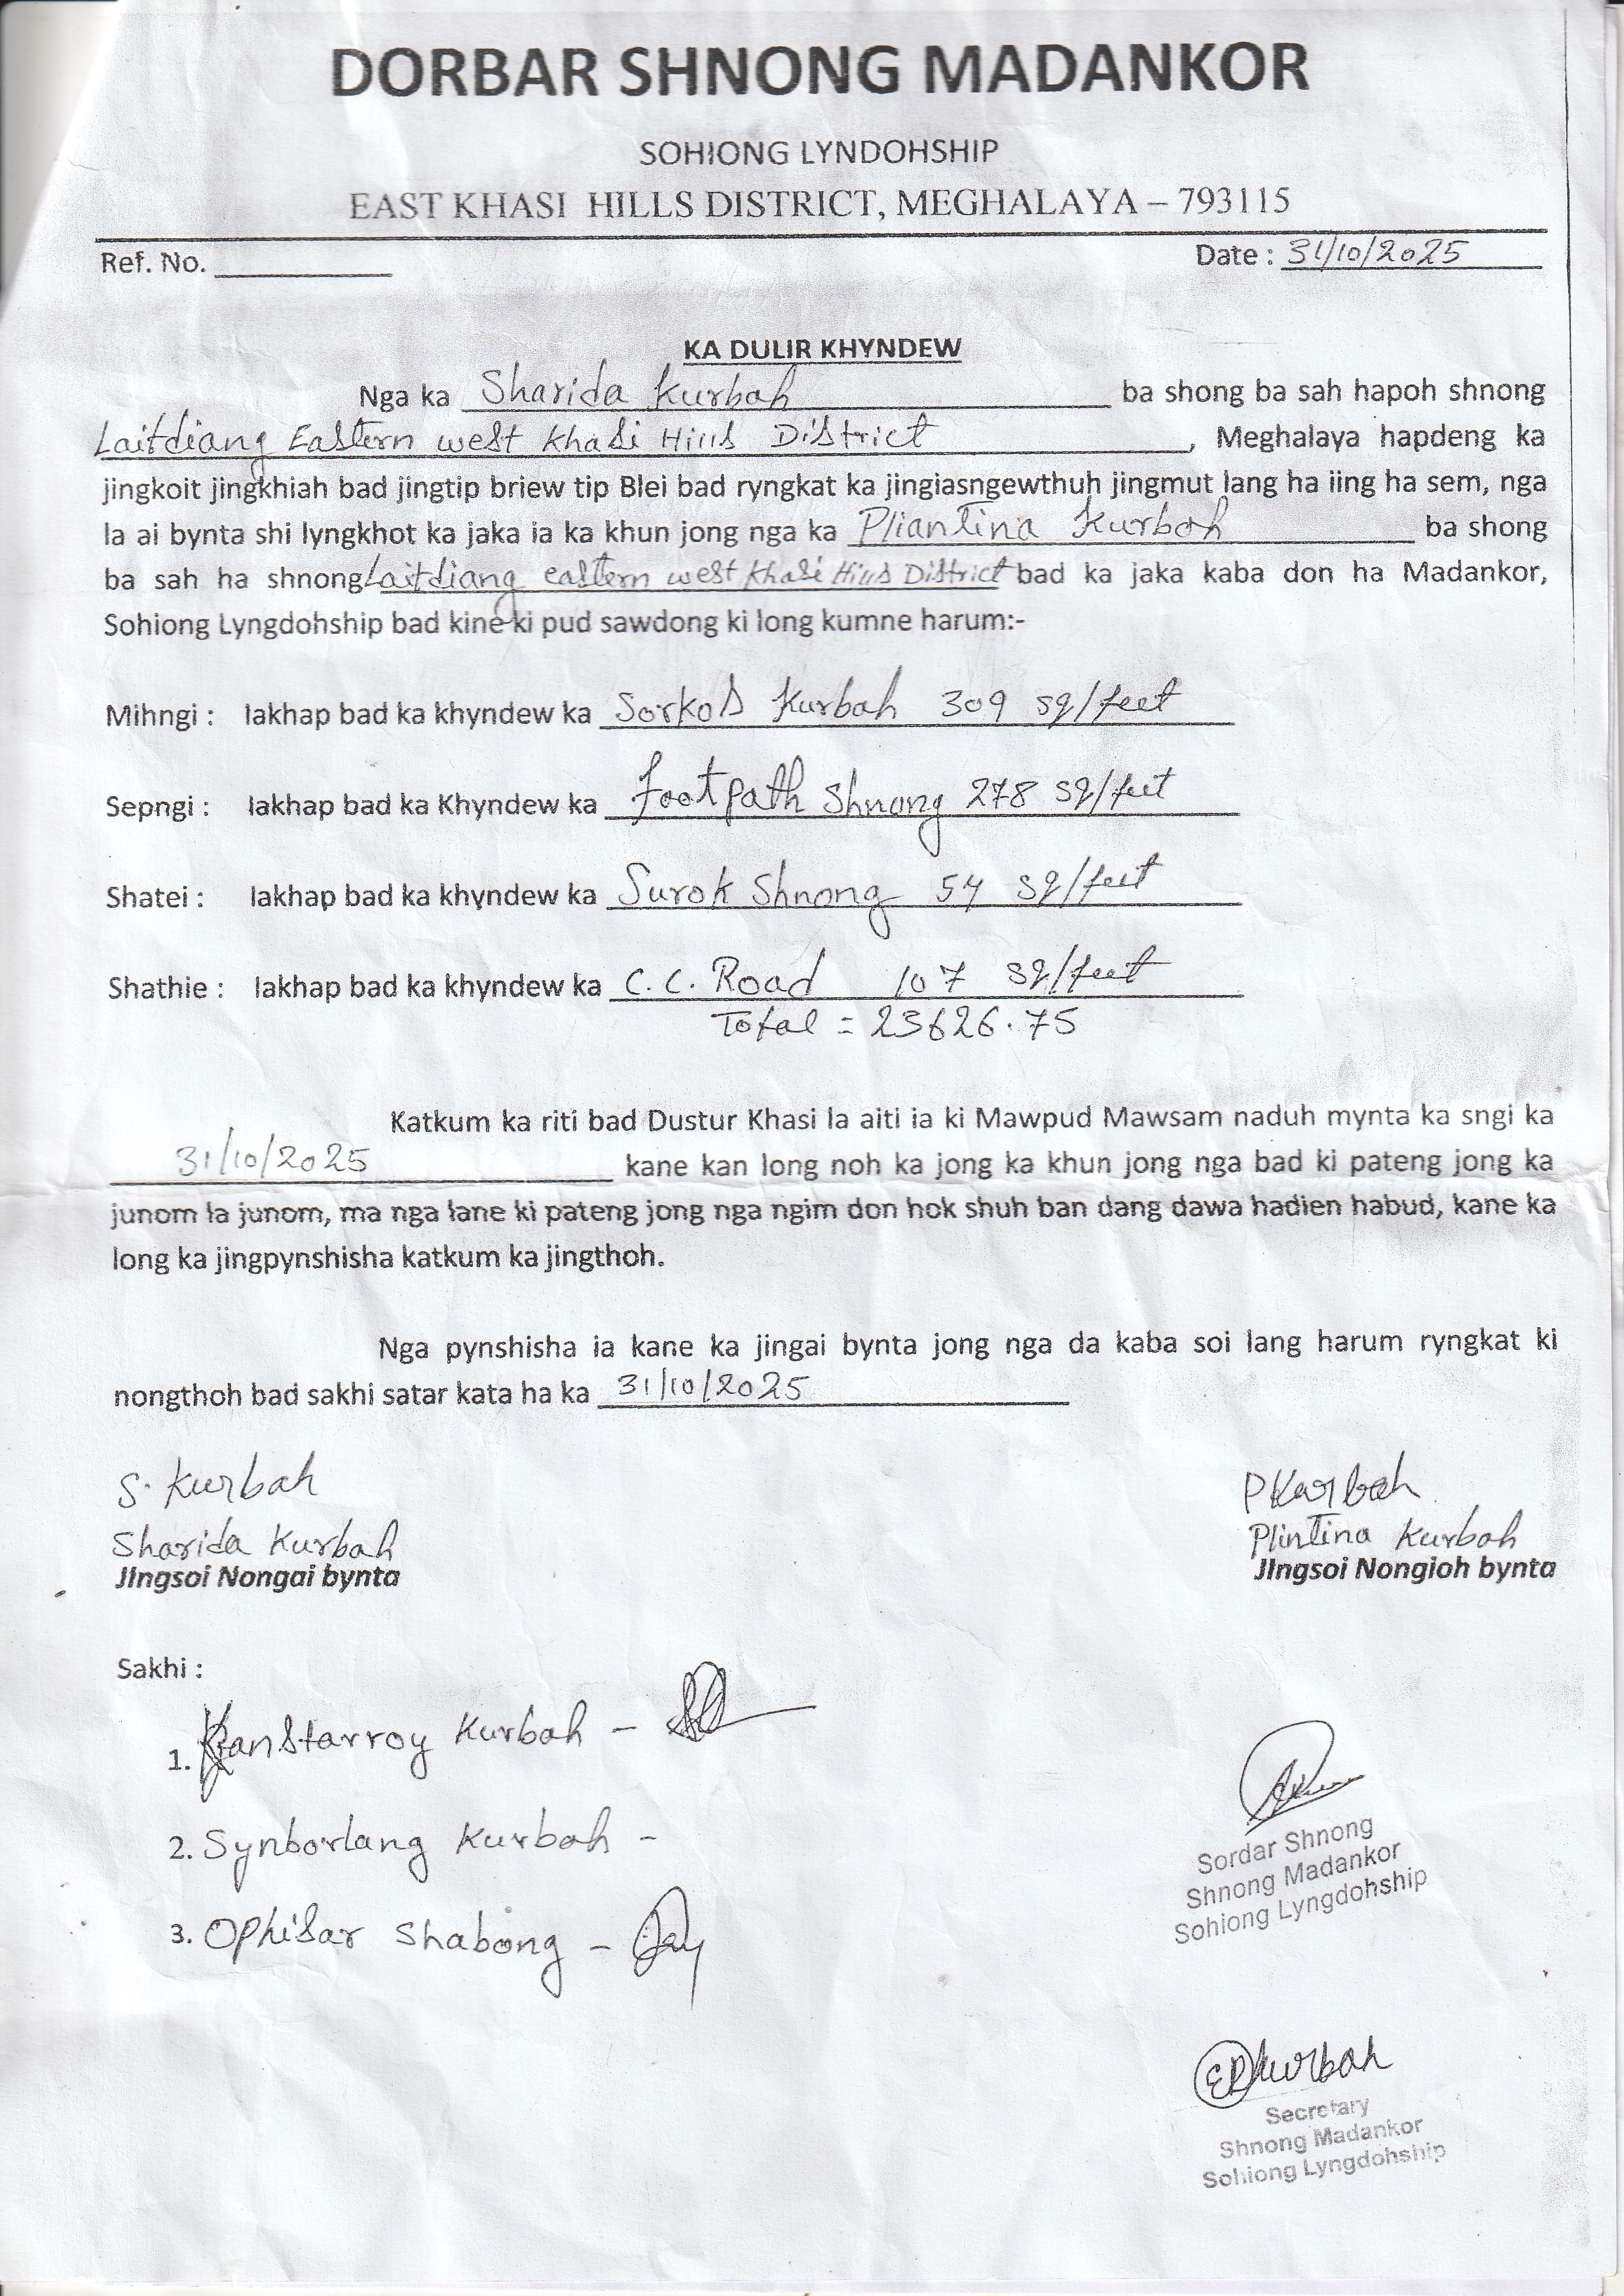 DORBAR SHNONG MADANKOR
SOHIONG LYNDOHSHIP
EAST KHASI HILLS DISTRICT, MEGHALAYA – 793115
Ref. No. Date : 31/10/2025
KA DULIR KHYNDEW
Nga ka Sharida Kurbah ba shong ba sah hapoh shnong
Laitdiang Eastern west Khasi Hills District, Meghalaya hapdeng ka
jingkoit jingkhiah bad jingtip briew tip Blei bad ryngkat ka jingiasngewthuh jingmut lang ha iing ha sem, nga
la ai bynta shi lyngkhot ka jaka ia ka khun jong nga ka Pliantina Kurbah ba shong
ba sah ha shnong Laitdiang eastern west Khasi Hills District bad ka jaka kaba don ha Madankor,
Sohiong Lyngdohship bad kine ki pud sawdong ki long kumne harum:-
Mihngi : Iakhap bad ka khyndew ka Sorkos Kurbah 309 sq/feet
Sepngi : Iakhap bad ka Khyndew ka Footpath Shnong 278 sq/feet
Shatei : Iakhap bad ka khyndew ka Surok Shnong 54 sq/feet
Shathie : Iakhap bad ka khyndew ka C.C. Road 107 sq/feet
Total = 23626.75
Katkum ka riti bad Dustur Khasi la aiti ia ki Mawpud Mawsam naduh mynta ka sngi ka
31/10/2025 kane kan long noh ka jong ka khun jong nga bad ki pateng jong ka
junom la junom, ma nga lane ki pateng jong nga ngim don hok shuh ban dang dawa hadien habud, kane ka
long ka jingpynshisha katkum ka jingthoh.
Nga pynshisha ia kane ka jingai bynta jong nga da kaba soi lang harum ryngkat ki
nongthoh bad sakhi satar kata ha ka 31/10/2025
S. Kurbah PKurbah
Sharida Kurbah Plintina Kurbah
JIngsoi Nongai bynta JIngsoi Nongioh bynta
Sakhi :
1. Kanstarroy Kurbah –
2. Synborlang Kurbah –
3. Ophisar Shabong –
Sordar Shnong
Shnong Madankor
Sohiong Lyngdohship
Kurbah
Secretary
Shnong Madankor
Sohiong Lyngdohship